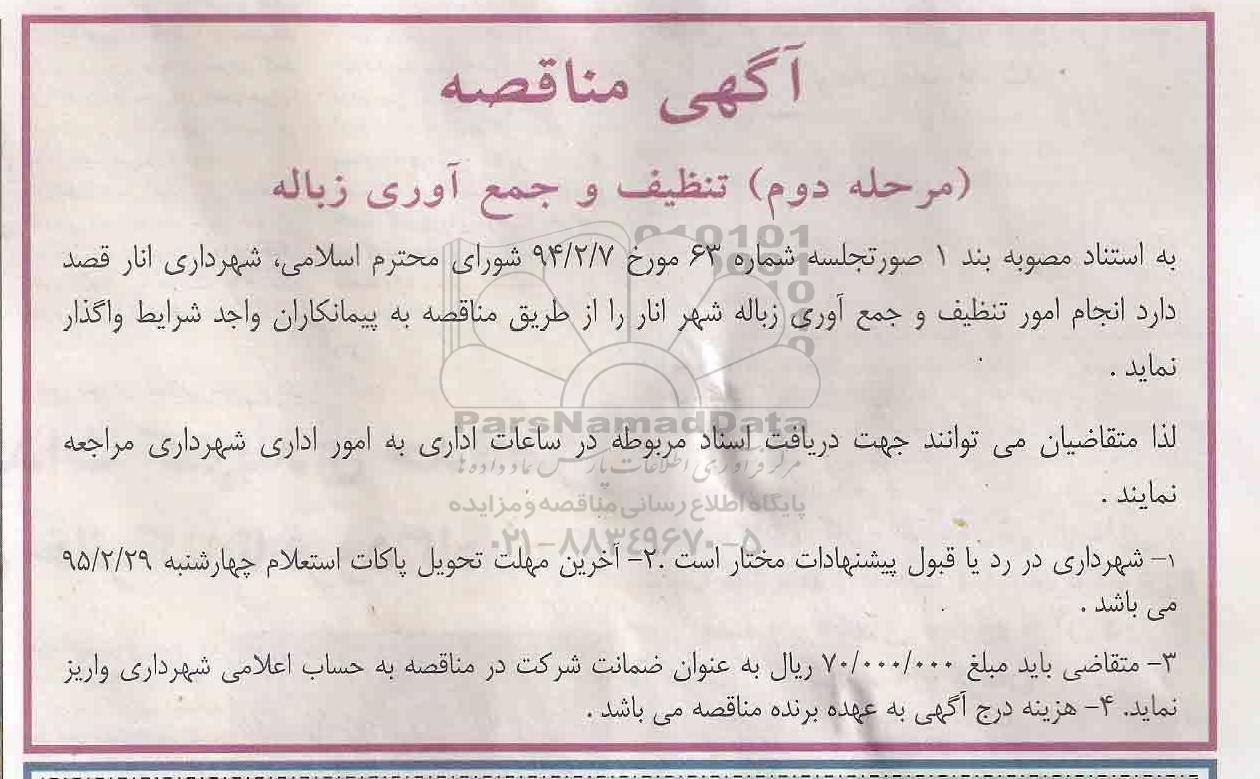 آگهی مناقصه
(مرحله دوم) تنظیف و جمع آوری زباله
به استناد مصوبه بند ۱ صورتجلسه شماره ۶۳ مورخ ۹۴/۲/۷ شورای محترم اسلامی، شهرداری انار قصد
دارد انجام امور تنظیف و جمع آوری زباله شهر انار را از طریق مناقصه به پیمانکاران واجد شرایط واگذار
نماید .
لذا متقاضیان می توانند جهت دریافت اسناد مربوطه در ساعات اداری به امور اداری شهرداری مراجعه
نمایند .
۱- شهرداری در رد یا قبول پیشنهادات مختار است .۲- آخرین مهلت تحویل پاکات استعلام چهارشنبه ۹۵/۲/۲۹
می باشد .
۳- متقاضی باید مبلغ ۷۰/۰۰۰/۰۰۰ ریال به عنوان ضمانت شرکت در مناقصه به حساب اعلامی شهرداری واریز
نماید. ۴- هزینه درج آگهی به عهده برنده مناقصه می باشد .
ParsNamadData
مرکز فرآوری اطلاعات پارس نماد داده ها
پایگاه اطلاع رسانی مناقصه و مزایده
۰۲۱-۸۸۳۴۹۶۷۰-۵